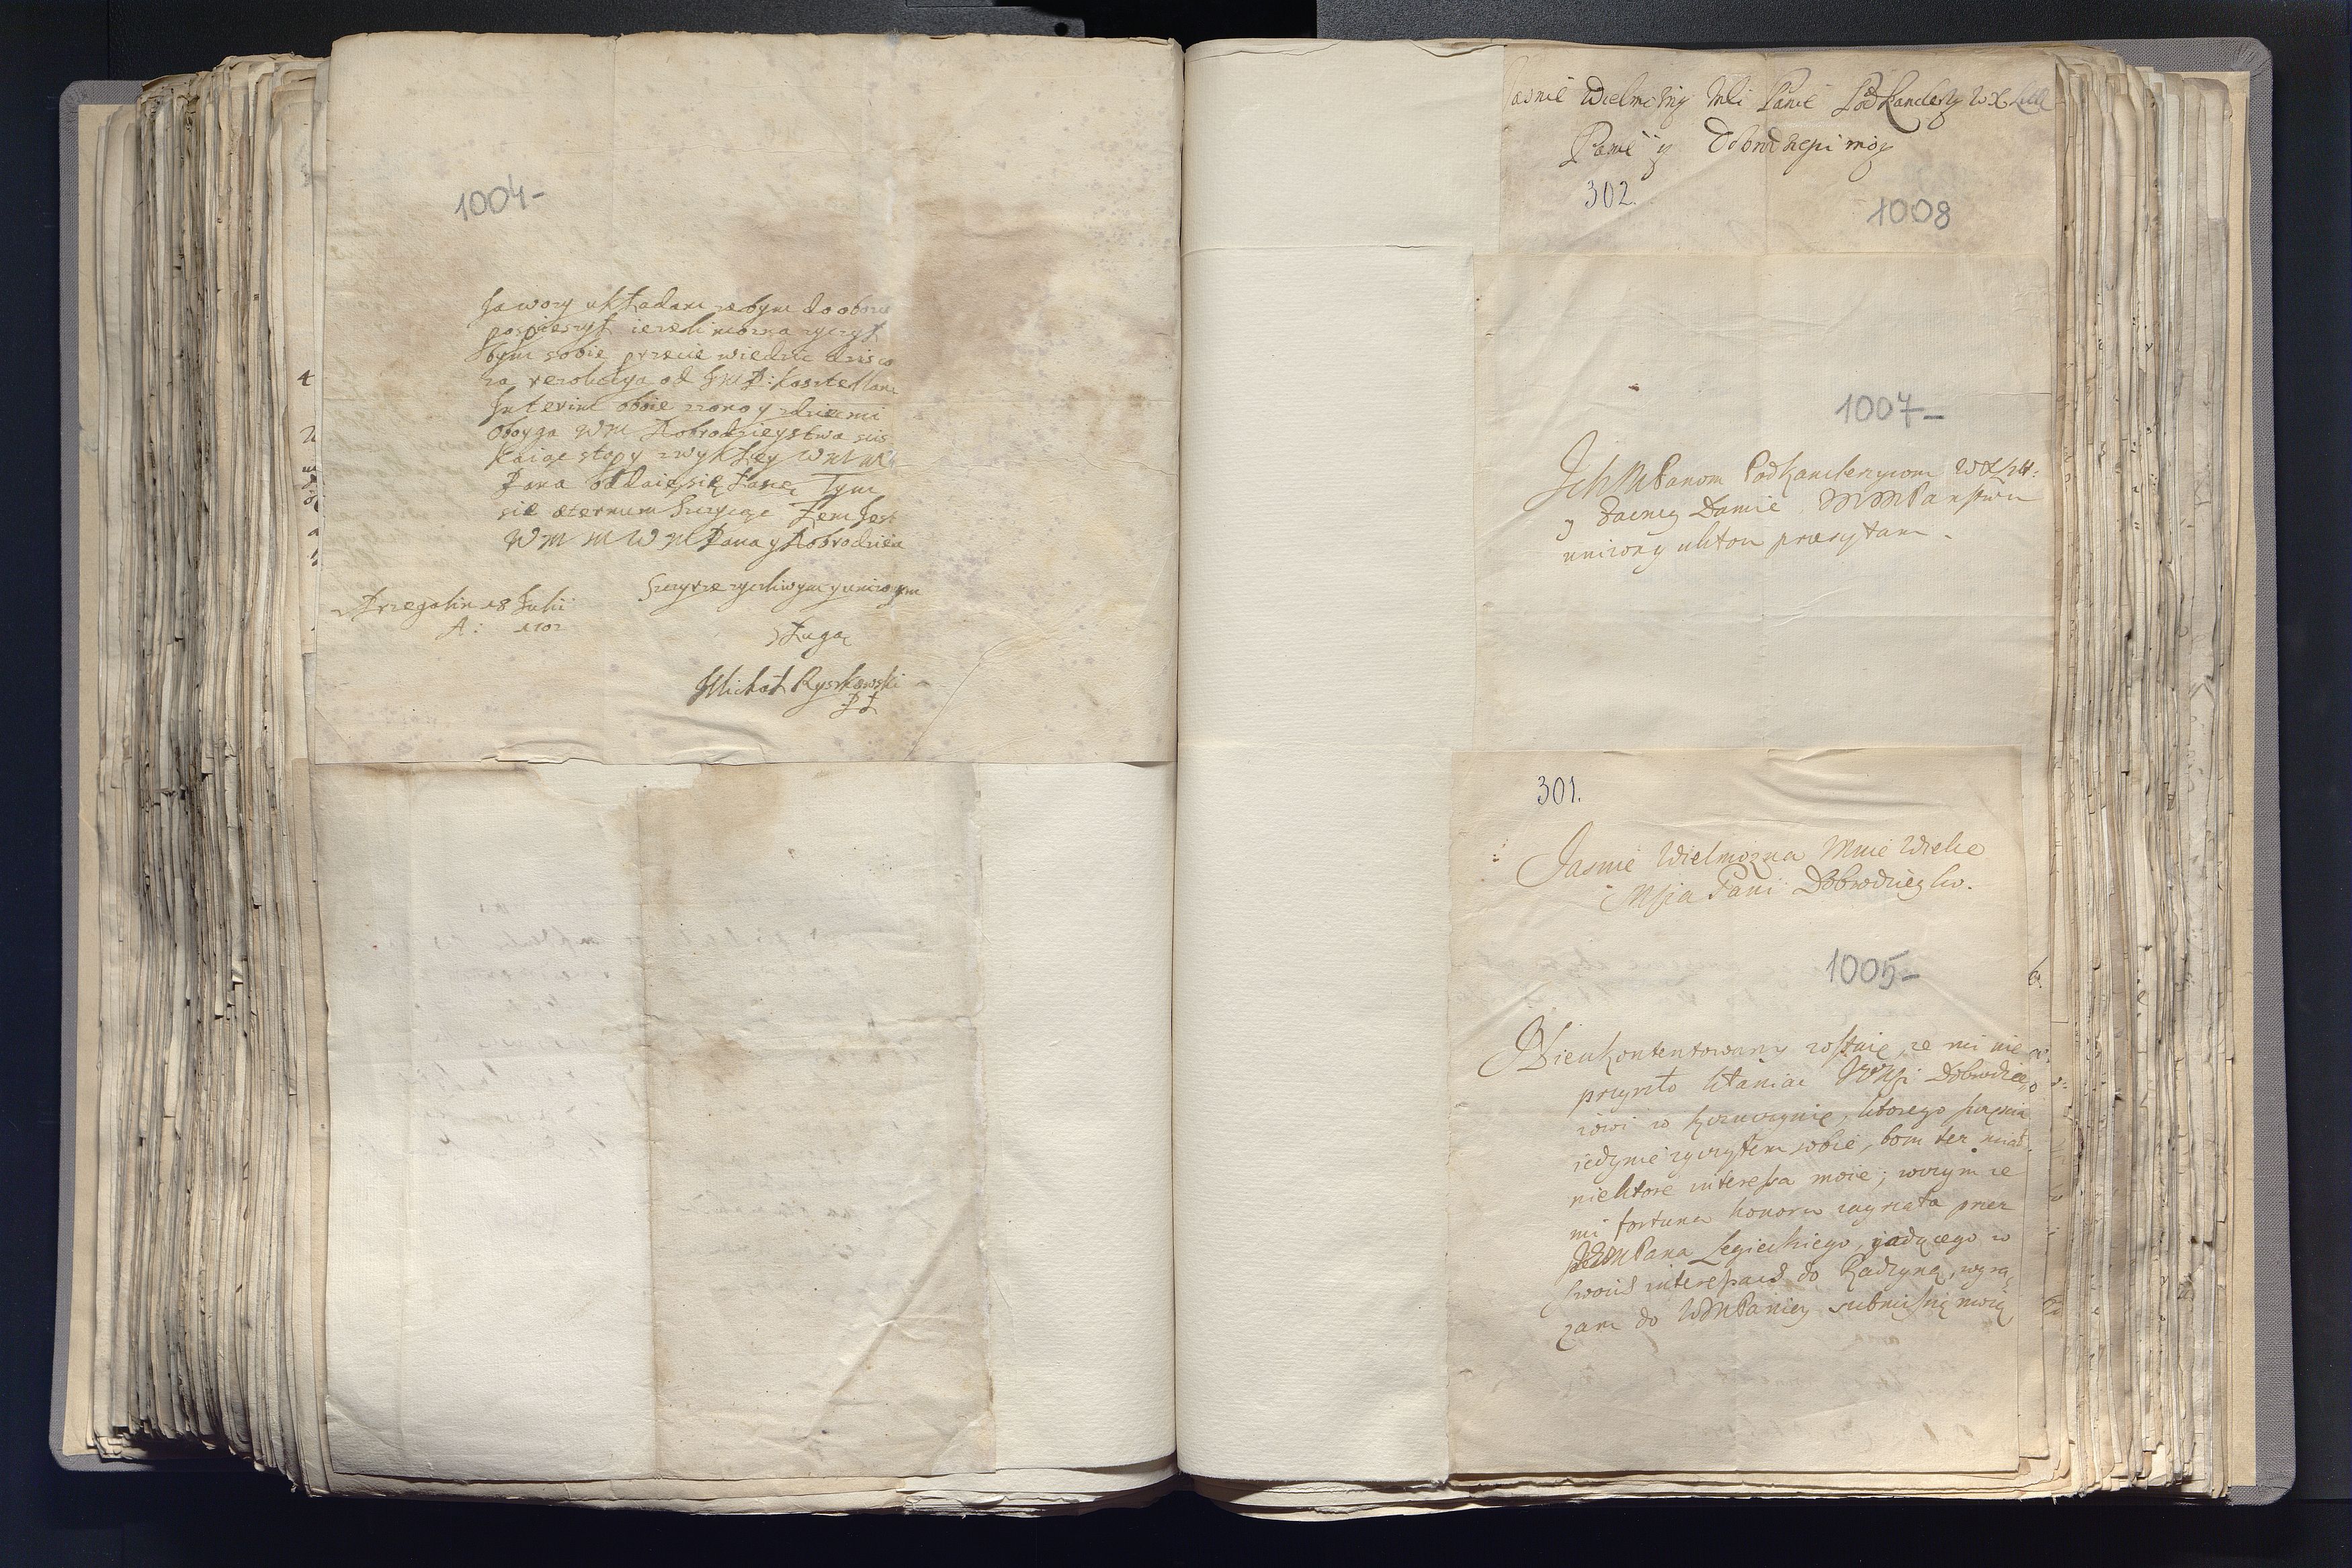 1004-
Ja wozy układam zebym do obozu
pospieszył iezeli mozna zyczył
bym sobie przecie wiedziec dzis co
za rezolucya od JMP: Kasztellana
Interim oboie zzono y zdziecmi
oboyga WM Dobrodzieystwa scis
kaiąc stopy zwykłey WMM
Pana oddaię się łasce Tym
się æternum szczycąc żem Jest
WM M W M Pana y Dobrodzieia
Szczyrze zyczliwym y unizonym
Przegalin 18 Julii
A: 1702
Sługą
Michał Ryszkowski
PŁ
Jasnie Wielmozny Mci Panie Podkanclerzy WXLitt
Panie y Dobrodzieju moy
302.
1008
1007-
Ich M Panom Podkanclerzyiom WXLitt:
y zacney Damie MMPanstwu
unizony ukłon przesyłam.
301.
Jasnie Wielmozna Mnie Wielce
Msia Pani Dobrodzieyko.
1005-
Nieukontentowany zostaię, ze mi nie
przyszło kłaniac JWMsi Dobrodzie
iowi w Korczynie, ktorego szczęscia
iedynie zyczyłem sobie, bom tez miał
niektore interessa moie; w czym ze
mi fortuna honoru zayrzała przez
Jego M Pana Legieckiego, jadącego w
swoich interessach do Radzyna, wyra
zam do WMPaniey submissią moią